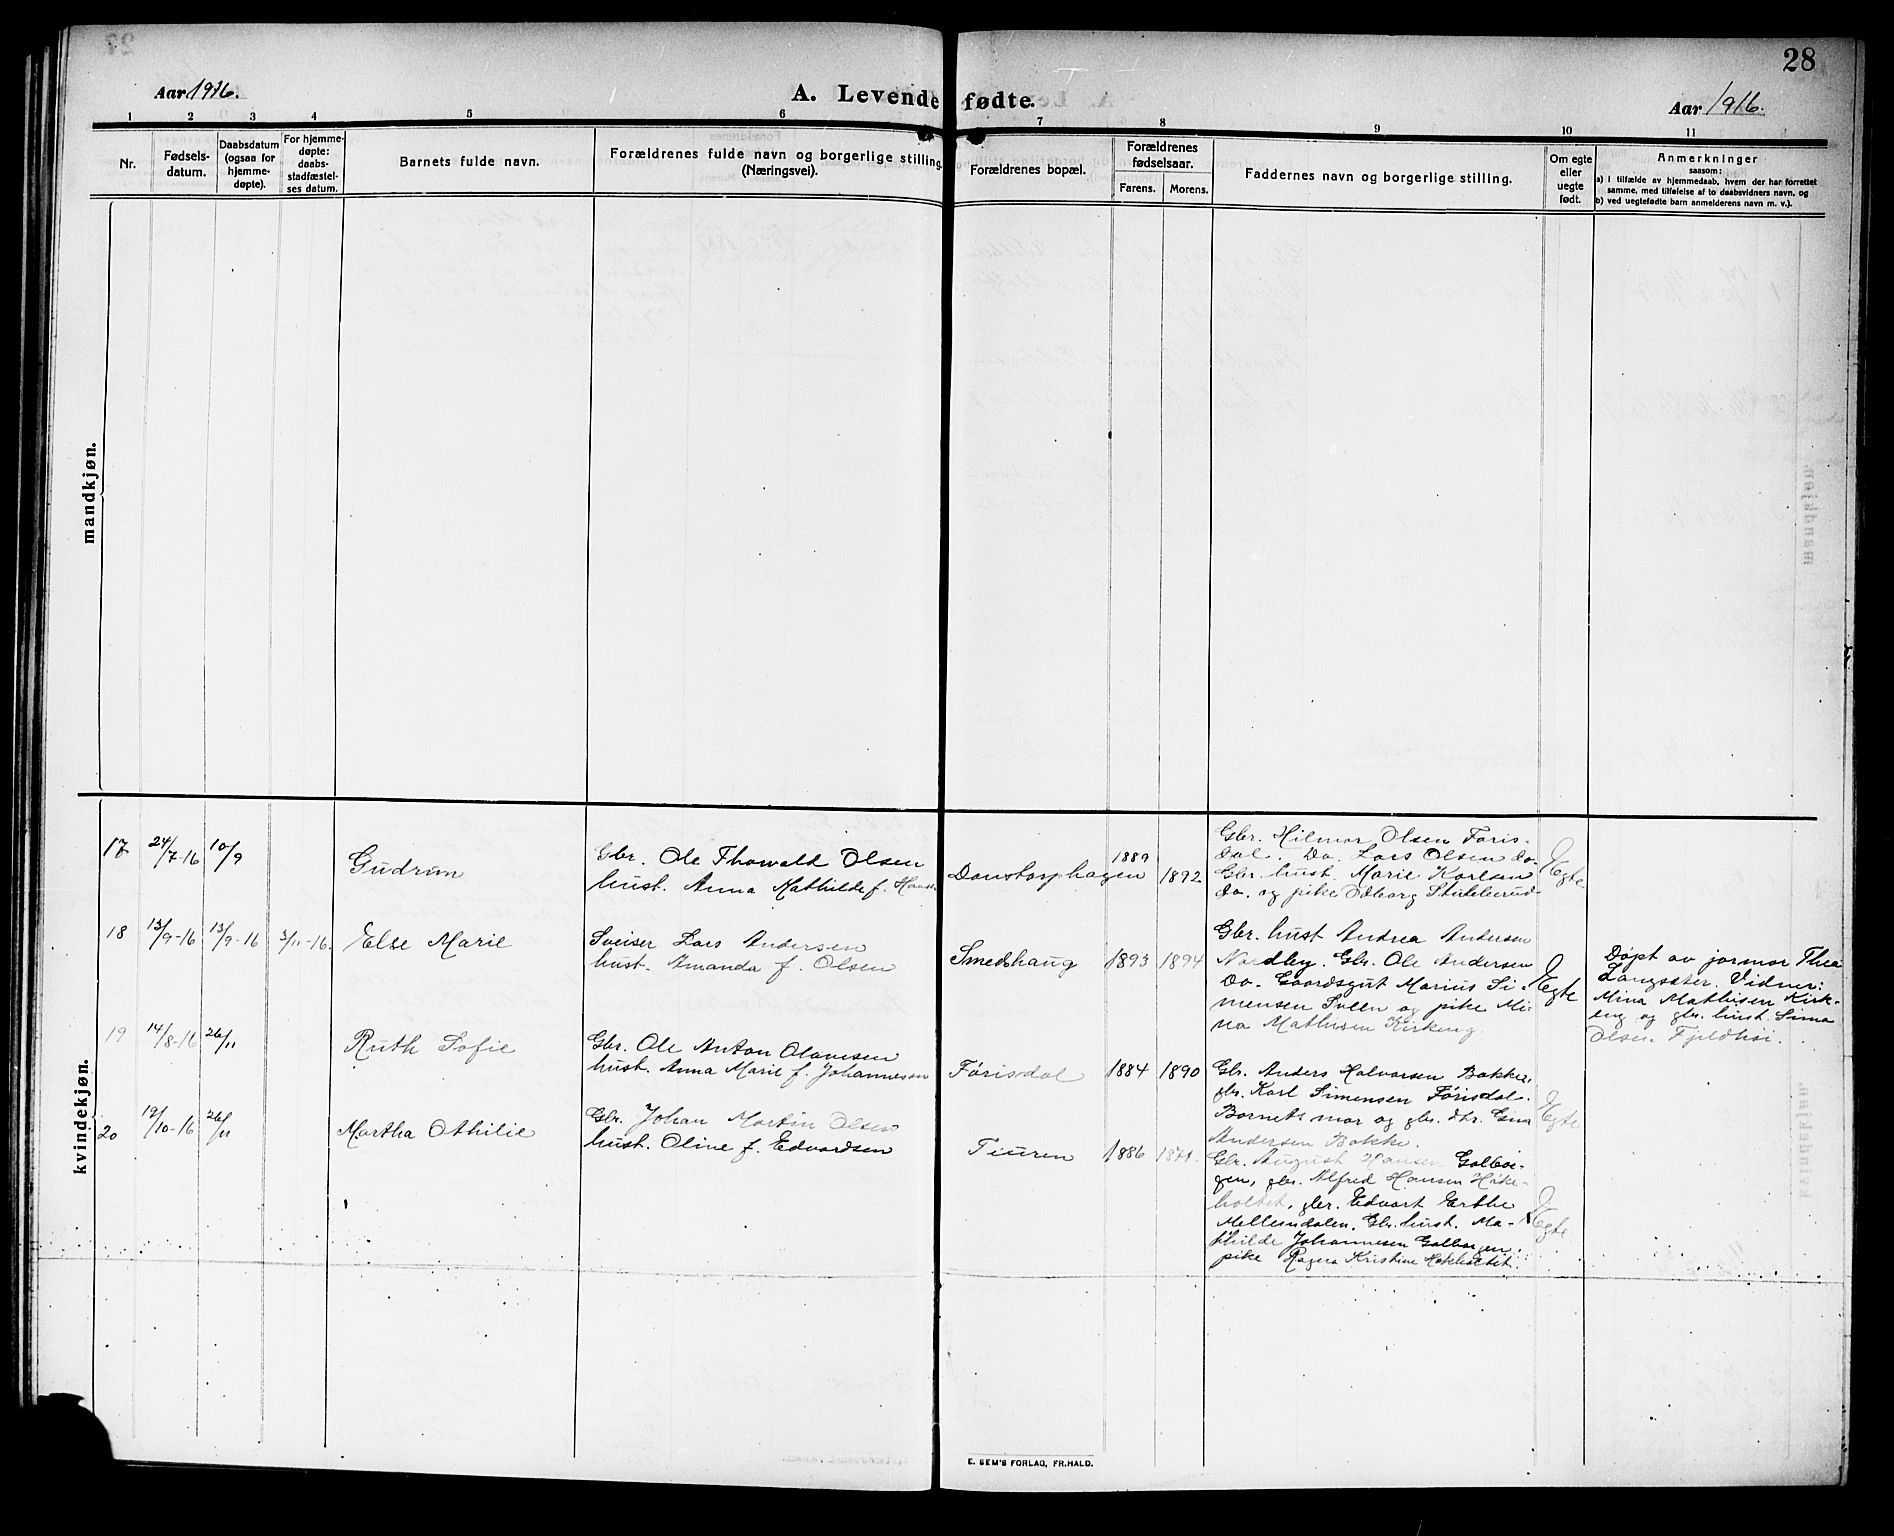 28
Aar 1916.
A. Levende fødte.
Aar 1916.
1 2 3 4 5 6 7 8 9 10 11
Nr.
Fødsels-
datum.
Daabsdatum
(ogsaa for
hjemme-
døpte).
For hjemme-
døpte:
daabs-
stadfæstel-
ses datum.
Barnets fulde navn.
Forældrenes fulde navn og borgerlige stilling.
(Næringsvei).
Forældrenes bopæl.
Forældrenes
fødselsaar.
Farens. Morens.
Faddernes navn og borgerlige stilling.
Om egte
eller
uegte
født.
Anmerkninger
saasom:
a) i tilfælde av hjemmedaab, hvem der har forrettet
samme, med tilføielse af to daabsvidners navn, og
b) ved uegtefødte barn anmelderens navn m. v.).
mandkjøn.
kvindekjøn.
17 24/7-16 10/9
Gudrun
Gbr. Ole Thorvald Olsen
hust. Anna Mathilde f.
Danstorphagen
1889
1892
Gbr. Hilmar Olsen Føris-
dal. Do. Lars Olsen do.
Gbr. hust. Marie Karlsen
do. og pike Odborg
Egte
18 13/9-16 13/9-16 3/11-16.
Else Marie
Sveiser Lars Andersen
hust. Amanda f. Olsen
Smedshaug
1893 1894
Gbr. hust Andrea Andersen
Nordby. Gbr. Ole Andersen
Do. Gaardsgut Marius Si-
mensen Sveen og pike Mi-
na Mathisen Kirkeng.
Egte
Døpt av jormor Thea
Langsæter. Vidner:
Mina Mathisen Kirk-
eng og gbr. hust. Sina
Olsen Fjeldhøi.
19 14/8-16 26/11
Ruth Sofie
Gbr. Ole Anton Olavesen
hust. Anna Marie f. Johannesen
Førisdal
1884 1890
Gbr. Anders Halvorsen Bakke,
gbr. Karl Simensen Førisdal.
Barnets mor og gbr. dtr.
Andersen Bakke.
Egte
20 19/10-16 26/11
Martha Othilie
Gbr. Johan Martin Olsen
hust. Oline f. Edvardsen
Tiuren
1886
Gbr. August Hansen Galbor-
gen, gbr. Alfred Hansen Høke-
holtet, gbr. Edvart Erthe
Mellemdalen. Gbr. hust. Ma-
thilde Johannesen Galborgen.
pike Ragna Kristine
Egte
E. SEM'S FORLAG, FR.HALD.